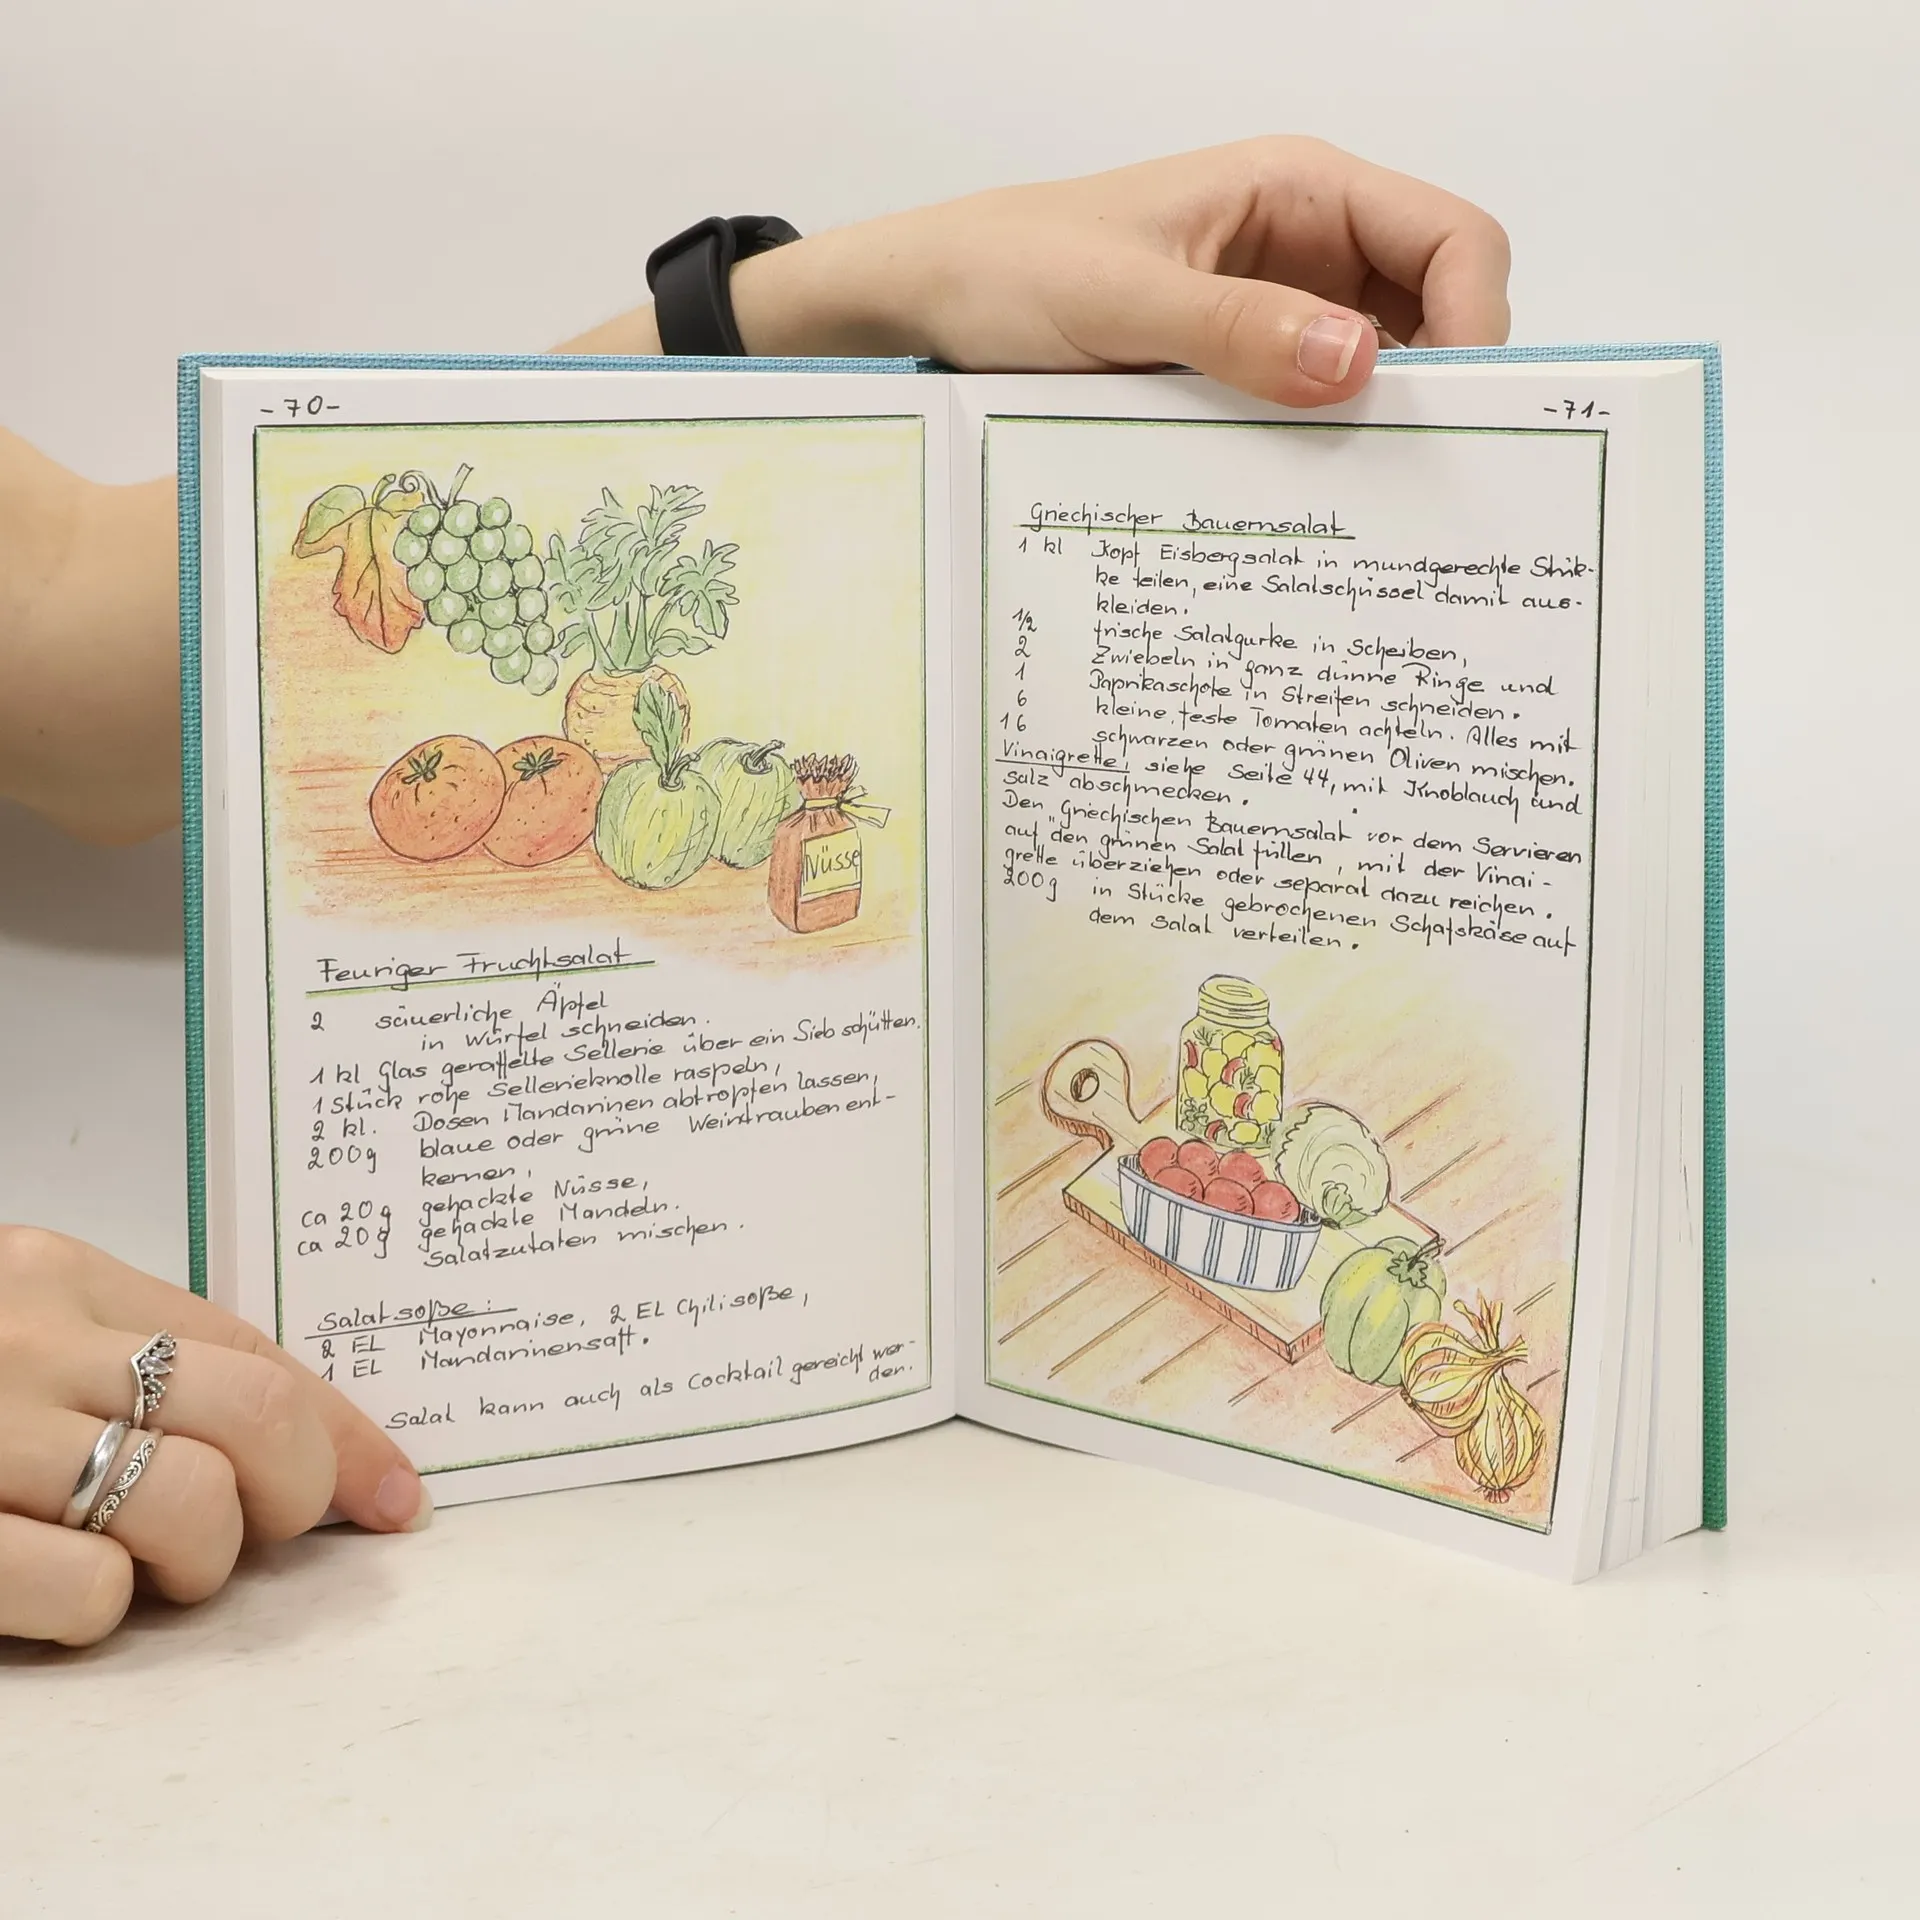 -70-
Nüsse
Feuriger Fruchtsalat
2 säuerliche Äpfel
in Würfel schneiden.
1 kl Glas geraffelte Sellerie über ein Sieb schütten.
1 Stück rohe Sellerieknolle raspeln,
2 kl. Dosen Mandarinen abtropfen lassen,
200g blaue oder grüne Weintrauben ent-
kernen,
ca 20g gehackte Nüsse,
ca 20g gehackte Mandeln.
Salatzutaten mischen.
Salatsoße:
2 EL Mayonnaise, 2 EL Chilisoße,
1 EL Mandarinensaft.
Salat kann auch als Cocktail gereicht wer-
den.
-71-
Griechischer Bauernsalat
1 kl Kopf Eisbergsalat in mundgerechte Stük-
ke teilen, eine Salatschüssel damit aus-
kleiden.
1/2 frische Salatgurke in Scheiben,
2 Zwiebeln in ganz dünne Ringe und
1 Paprikaschote in Streifen schneiden.
6 kleine, feste Tomaten achteln. Alles mit
16 schwarzen oder grünen Oliven mischen.
Vinaigrette, siehe Seite 44, mit Knoblauch und
salz abschmecken.
Den Griechischen Bauernsalat vor dem Servieren
auf den grünen Salat füllen, mit der Vinai-
grette überziehen oder separat dazu reichen.
200g in Stücke gebrochenen Schafskäse auf
dem Salat verteilen.